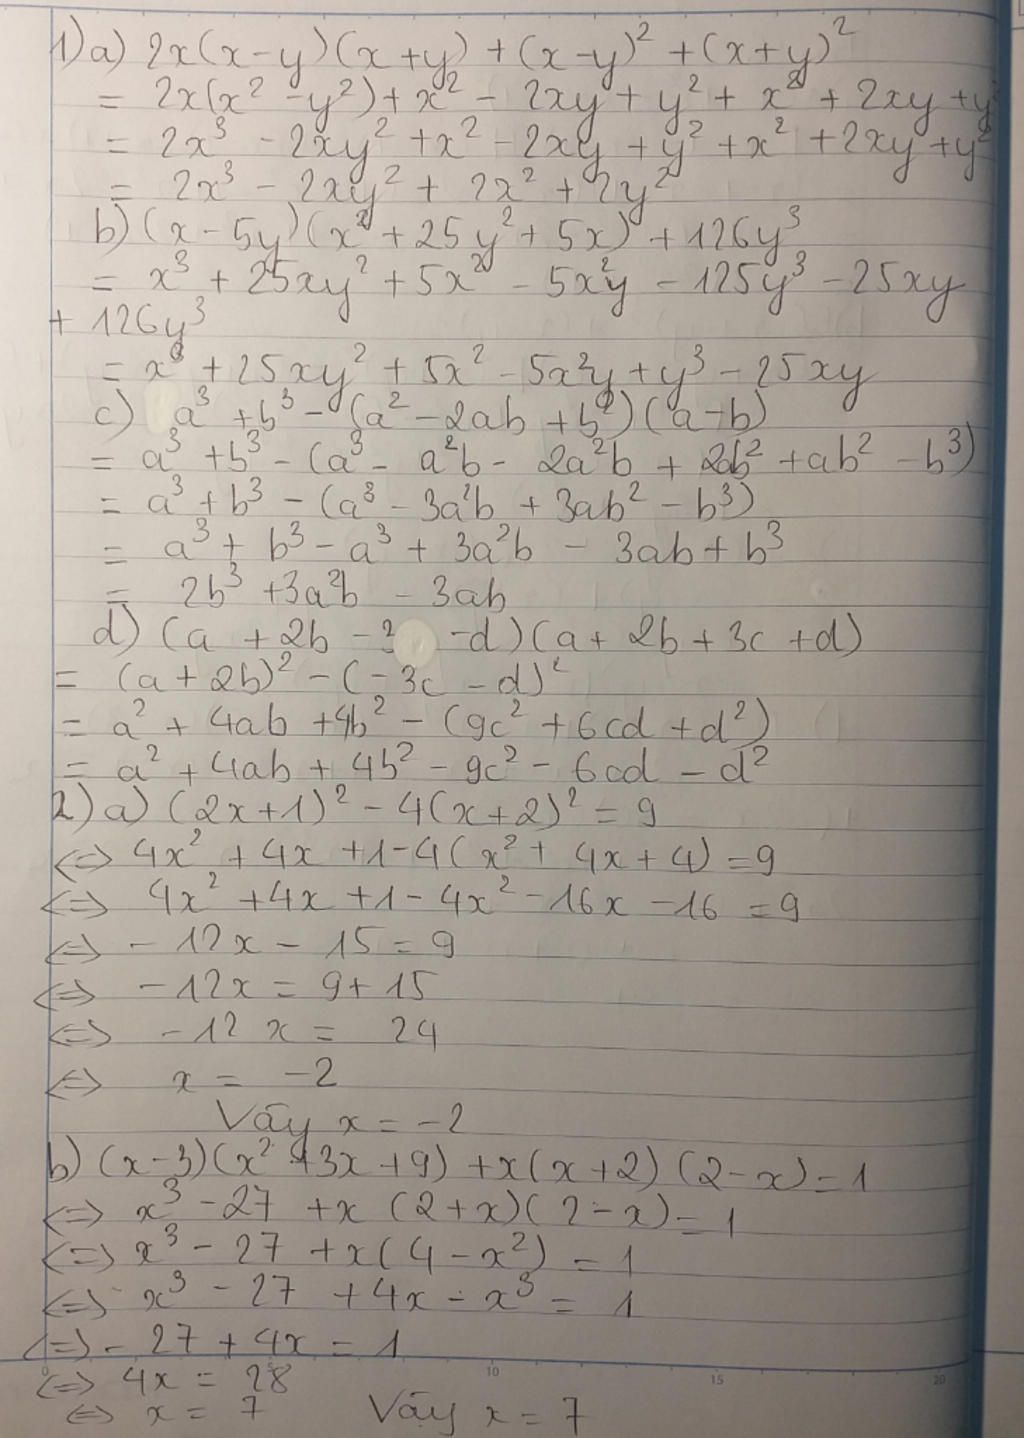 1) a) 2x(x-y)(x+y) + (x-y)² + (x+y)²
= 2x(x² - y²) + x² - 2xy + y² + x² + 2xy + y²
= 2x³ - 2xy² + x² - 2xy + y² + x² + 2xy + y²
= 2x³ - 2xy² + 2x² + 2y²
b) (x - 5y)(x² + 25y² + 5x) + 126y³
= x³ + 25xy² + 5x² - 5x²y - 125y³ - 25xy
+ 126y³
= x³ + 25xy² + 5x² - 5x²y + y³ - 25xy
c) a³ + b³ - (a² - 2ab + b²)(a-b)
= a³ + b³ - (a³ - a²b - 2a²b + 2ab² + ab² - b³)
= a³ + b³ - (a³ - 3a²b + 3ab² - b³)
= a³ + b³ - a³ + 3a²b - 3ab + b³
= 2b³ + 3a²b - 3ab
d) (a + 2b - 3 -d)(a + 2b + 3c + d)
= (a + 2b)² - (-3c - d)²
= a² + 4ab + 4b² - (9c² + 6cd + d²)
= a² + 4ab + 4b² - 9c² - 6cd - d²
2) a) (2x+1)² - 4(x+2)² = 9
<=> 4x² + 4x + 1 - 4(x² + 4x + 4) = 9
<=> 4x² + 4x + 1 - 4x² - 16x - 16 = 9
<=> - 12x - 15 = 9
<=> - 12x = 9 + 15
<=> - 12 x = 24
<=> x = -2
Vậy x = -2
b) (x-3)(x² + 3x + 9) + x(x+2)(2-x) = 1
<=> x³ - 27 + x (2+x)(2-x) = 1
<=> x³ - 27 + x(4 - x²) = 1
<=> x³ - 27 + 4x - x³ = 1
<=> - 27 + 4x = 1
<=> 4x = 28
<=> x = 7 Vậy x = 7
0 10 15 20